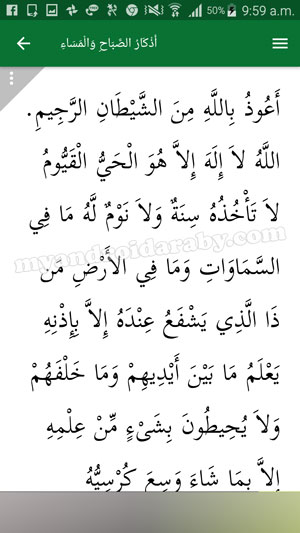 50% 9:59 a.m.
أَذْكَارُ الصَّبَاحِ وَالْمَسَاءِ
أَعُوذُ بِاللَّهِ مِنَ الشَّيْطَانِ الرَّجِيمِ.
اللَّهُ لاَ إِلَهَ إِلاَّ هُوَ الْحَيُّ الْقَيُّومُ
لاَ تَأْخُذُهُ سِنَةٌ وَلاَ نَوْمٌ لَّهُ مَا فِي
السَّمَاوَاتِ وَمَا فِي الأَرْضِ مَن
myandroidaraby.com
ذَا الَّذِي يَشْفَعُ عِنْدَهُ إِلاَّ بِإِذْنِهِ
يَعْلَمُ مَا بَيْنَ أَيْدِيهِمْ وَمَا خَلْفَهُمْ
وَلاَ يُحِيطُونَ بِشَيْءٍ مِّنْ عِلْمِهِ
إِلاَّ بِمَا شَاءَ وَسِعَ كُرْسِيُّهُ